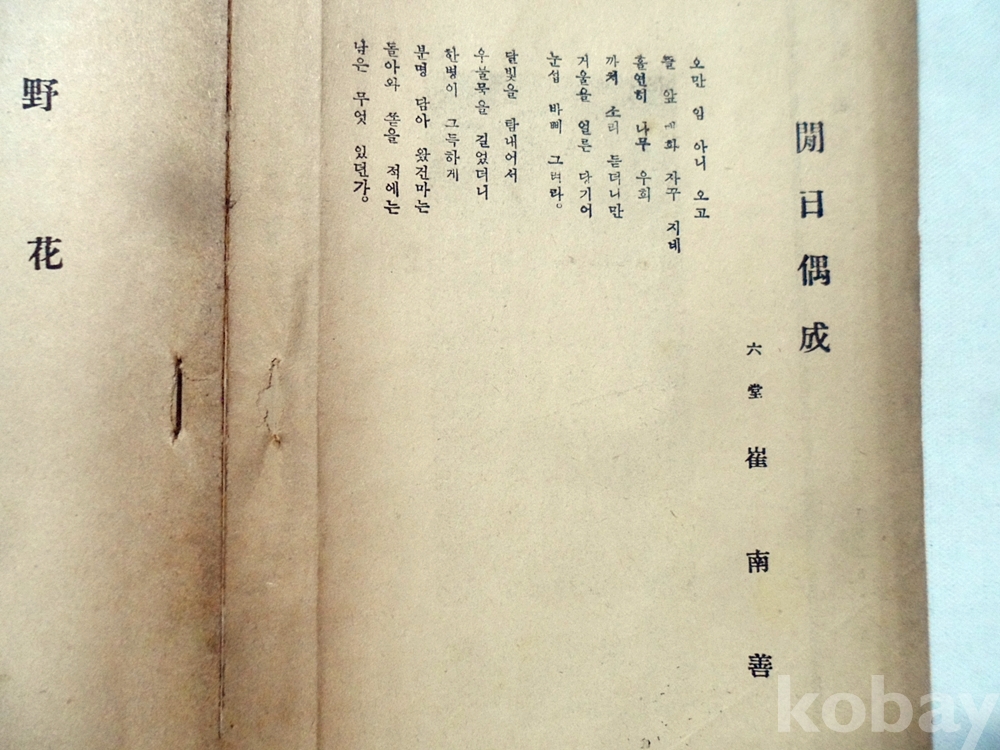 閒日偶成
六堂 崔南善
오만 임 아니 오고
뜰 앞 매화 자꾸 지네
홀연히 나무 우희
까치 소리 듣더니만
거울을 얼른 닥기어
눈섭 바삐 그려라。
달빛을 탐내어서
우물목을 길었더니
한병이 그득하게
분명 담아 왔건마는
돌아와 쏟을 적에는
남은 무엇 있던가。
野花
kobay